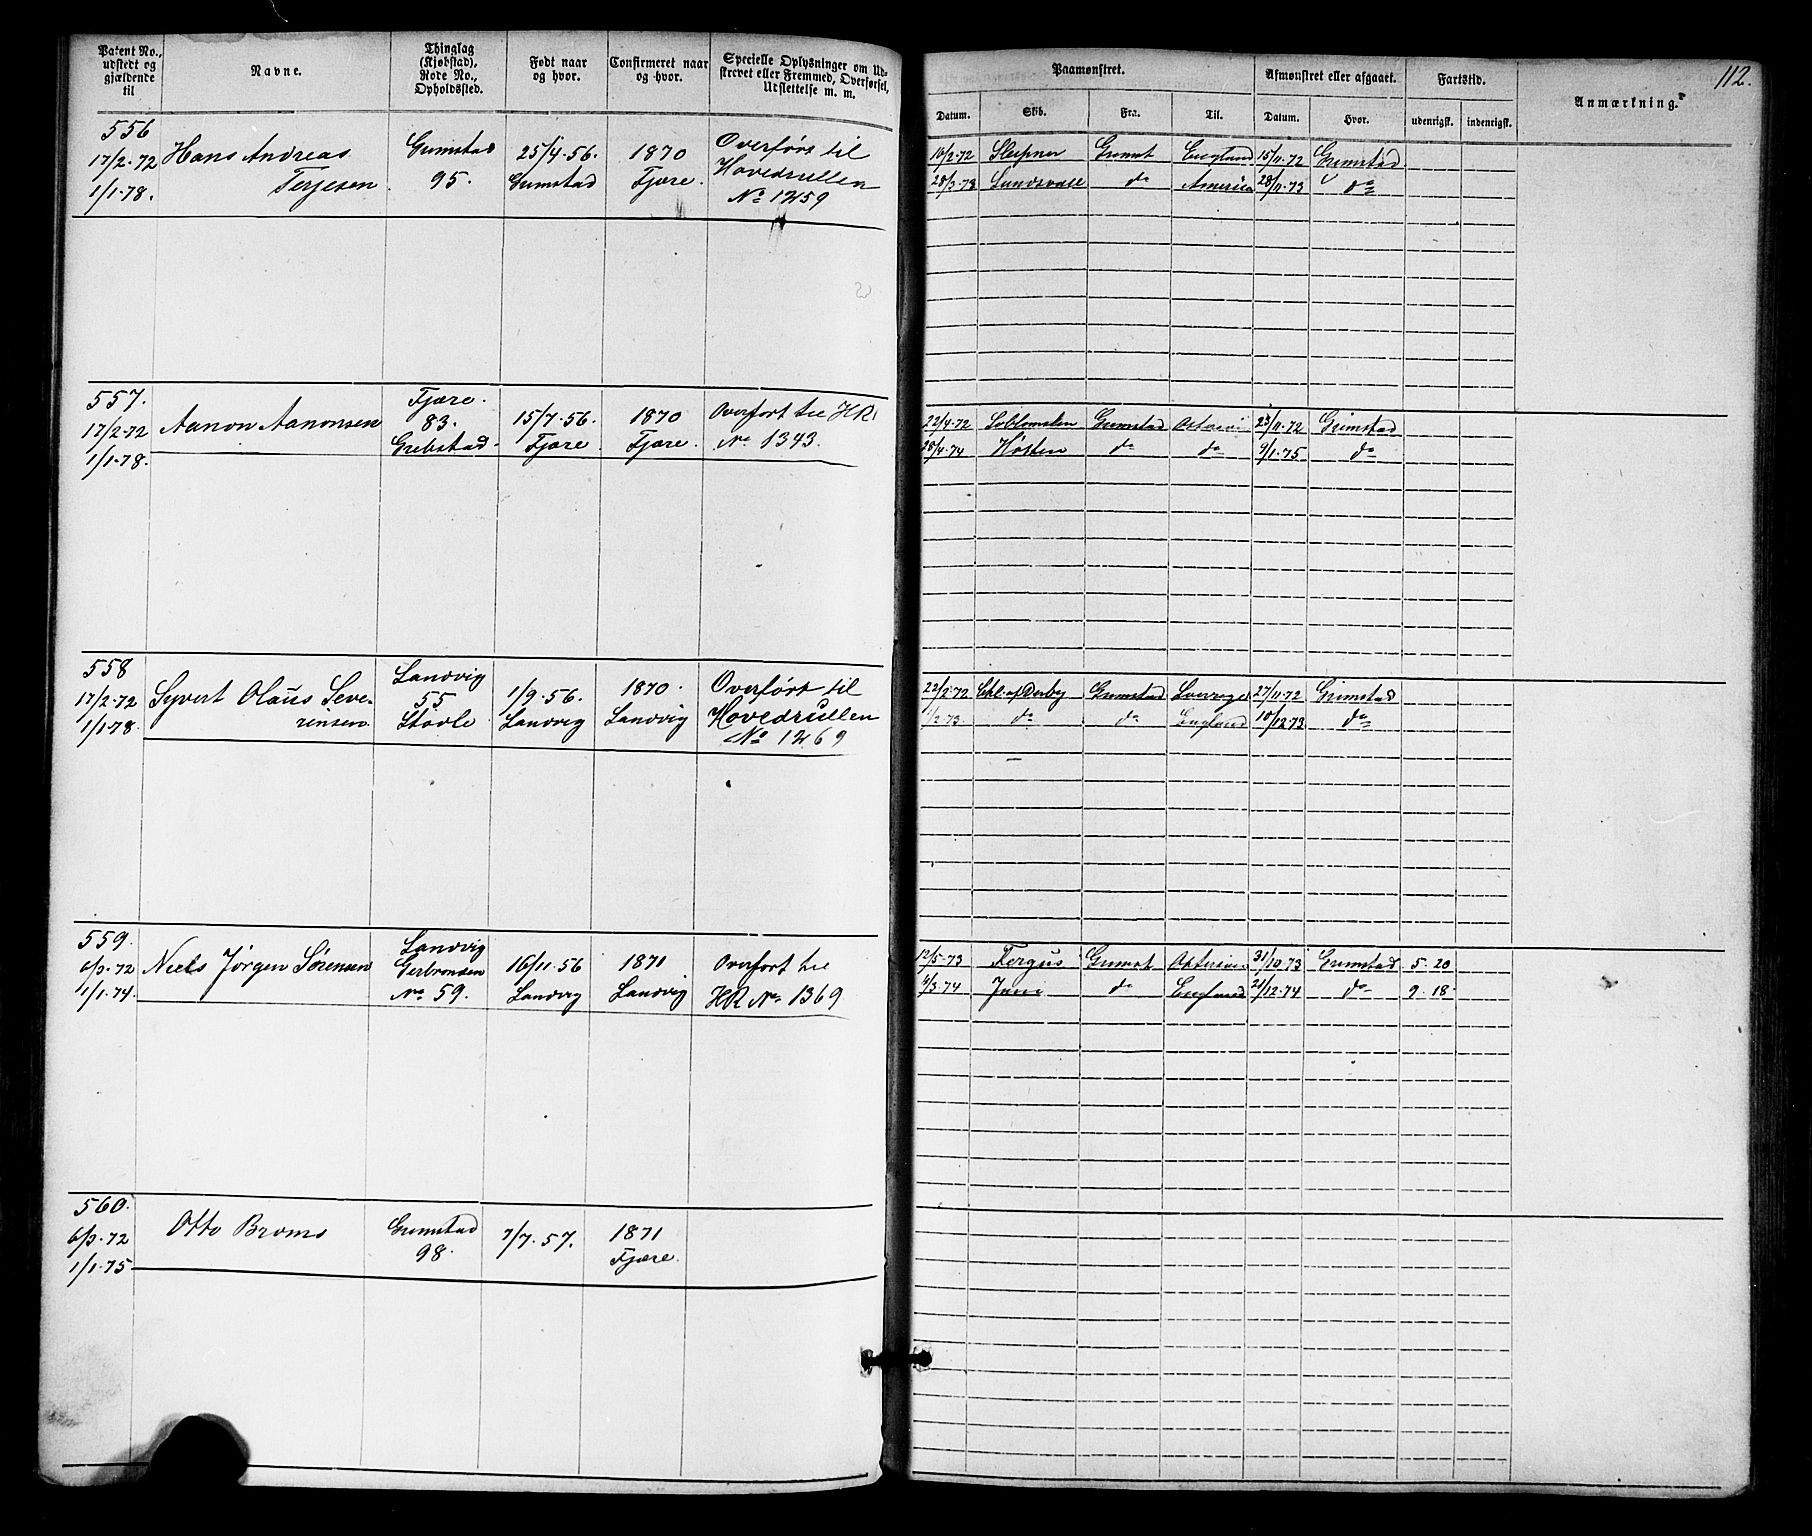 Patent No., udstedt og gjældende til
Navne.
Thinglag (Kjøbstad), Rode No., Opholdssted.
Født naar og hvor.
Confirmeret naar og hvor.
Specielle Oplysninger om Udskrevet eller Fremmed, Overførsel, Udslettelse m. m.
Paamønstret.
Afmønstret eller afgaaet.
Fartstid.
Anmærkning.
112.
Datum. Skib. Fra. Til. Datum. Hvor. udenrigsk. indenrigsk.
556
17/2-72 Hans Andreas Grimstad 25/4-56. 1870 Overført til
1/1-78. Terjesen 95. Grimstad Fjære. Hovedrullen
No 1259
16/2-72 Sleipner Grimst England 15/11-72 Grimstad
28/3-73 Sundsvall do America 28/11-73 do
557. Fjære.
17/2-72 Aanon Aanonsen 83. 15/7-56. 1870 Overført til HR
1/1-78. Grebstad Fjære Fjære. No 1343.
22/4-72 Grimstad 23/11-72 Grimstad
28/4-74 Høsten do do 9/1-75 do
558 Landvig
17/2-72 Syvert Olaus Seve- 55 1/9-56. 1870. Overført til
1/1-78. rinsen Støvle Landvig Landvig Hovedrullen
No 1269
22/2-72 Grimstad Sverrige 27/11-72 Grimstad
1/2-73. do do England 10/12-73 do
559. Landvig
6/3-72 Niels Jørgen Sörensen 16/11-56 1871 Overført til
1/1-74. No 59. Landvig Landvig HR No 1369
12/5-73 Fergus Grimst 31/10-73 Grimstad 5. 20
4/3-74 do England 21/12-74 do 9. 18
560.
6/3-72 Otto Broms Grimstad 7/7-57. 1871
1/1-75 98. Fjære.